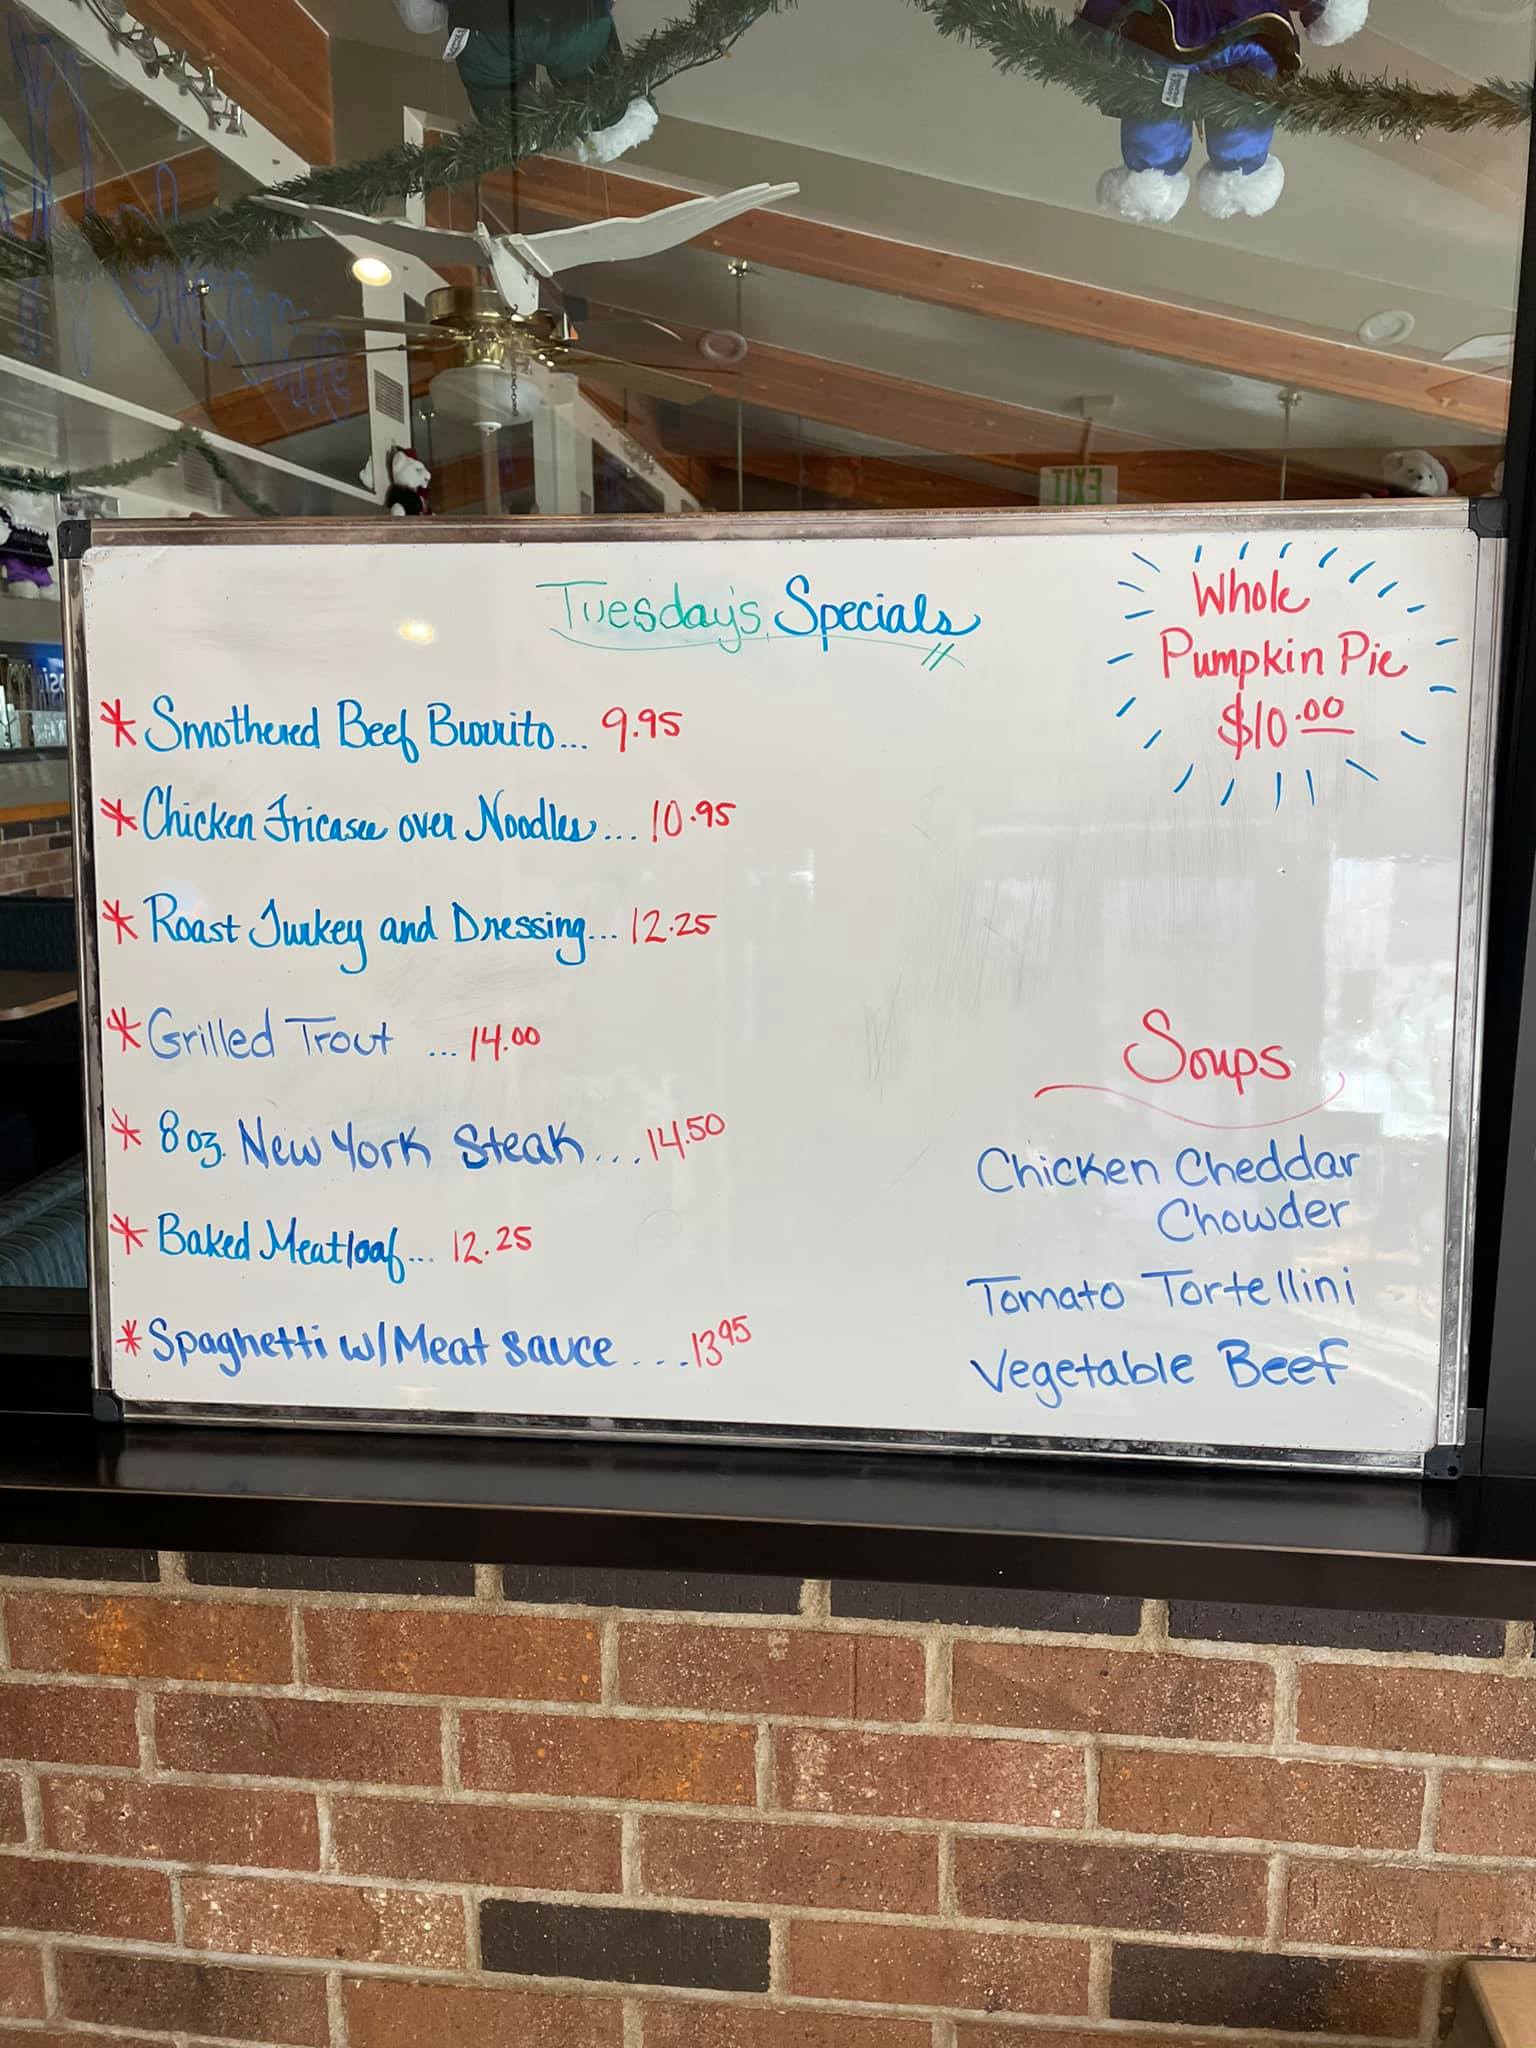 Tuesday's Specials
* Smothered Beef Burrito... 9.95
* Chicken Fricasee over Noodles... 10.95
* Roast Turkey and Dressing... 12.25
* Grilled Trout ... 14.00
* 8 oz. New York Steak ... 14.50
* Baked Meatloaf... 12.25
* Spaghetti w/ Meat sauce .... 13 95
Whole
Pumpkin Pie
$10.00
Soups
Chicken Cheddar
Chowder
Tomato Tortellini
Vegetable Beef
EXIT